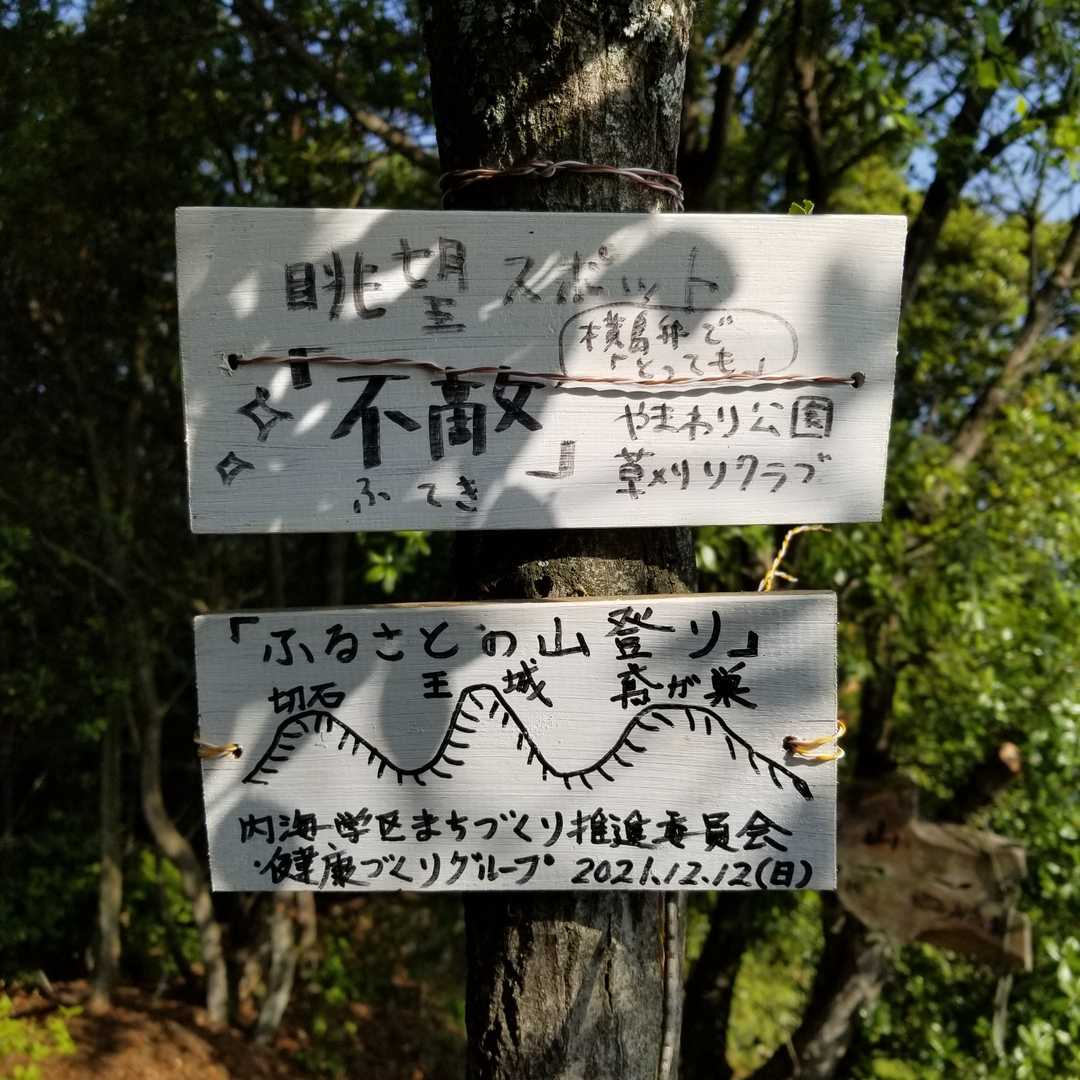 眺望スポット
横島弁で
「とっても」
「不敵」
ふてき
やまわり公園
草メリリクラブ
「ふるさとの山登り」
切石 王城 鳶が巣
内海学区まちづくり推進委員会
健康づくりグループ 2021.12.12(日)